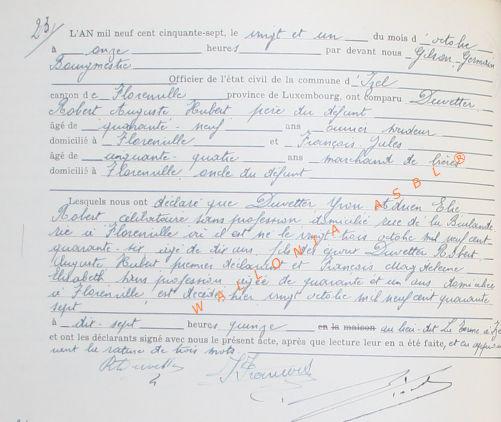 23/
L'AN mil neuf cent cinquante-sept, le vingt et un du mois d'octobre
à onze heures par devant nous Gilson Germain
Bourgmestre
Officier de l'état civil de la commune d'Izel
canton de Florenville province de Luxembourg, ont comparu Duvetter
Robert Auguste Hubert père du défunt
âgé de quarante-neuf ans ouvrier soudeur
domicilié à Florenville et François Jules
âgé de cinquante-quatre ans marchand de bières
domicilié à Florenville oncle du défunt
Lesquels nous ont déclaré que Duvetter Yvon Elie
Robert célibataire sans profession domicilié rue de la
à Florenville où il est né le vingt trois octobre mil neuf cent
quarante-six, âgé de dix ans, fils de Duvetter Robert
Auguste Hubert premier déclarant et François Magdeleine
Elisabeth sans profession âgée de quarante et un ans domiciliée
à Florenville, est décédé hier vingt octobre mil neuf cent quarante
sept
à dix-sept heures quinze en la maison au lieu-dit
et ont les déclarants signé avec nous le présent acte, après que lecture leur en a été faite, et en
vent la rature de trois mots.
RDuvetter
JFrançois
WALLONIA ASBL ®